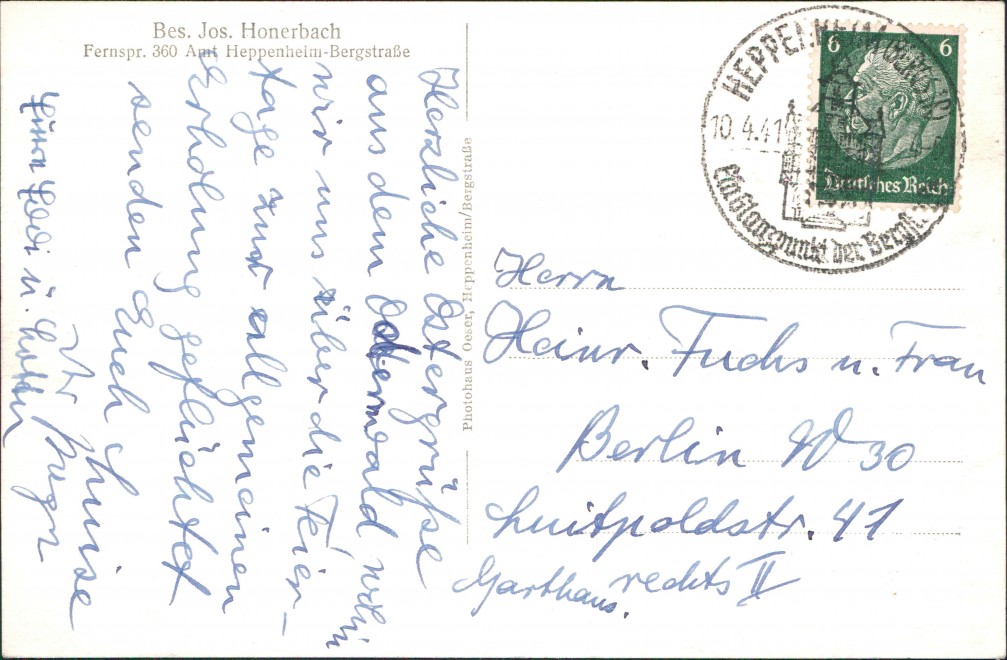 Bes. Jos. Honerbach
Fernspr. 360 Amt Heppenheim-Bergstraße
Herzliche Ostergrüße
aus dem Odenwald wohin
wir uns über die Feier-
tage zur allgemeinen
Erholung geflüchtet
senden Euch Luise
Photohaus Oeser, Heppenheim/Bergstraße
HEPPENHEIM
10.4.41
der Bergstr
6 6
Deutsches Reich
Herrn
Heinr. Fuchs u. Frau
Berlin W 30
Luitpoldstr. 41
Garthaus. rechts II